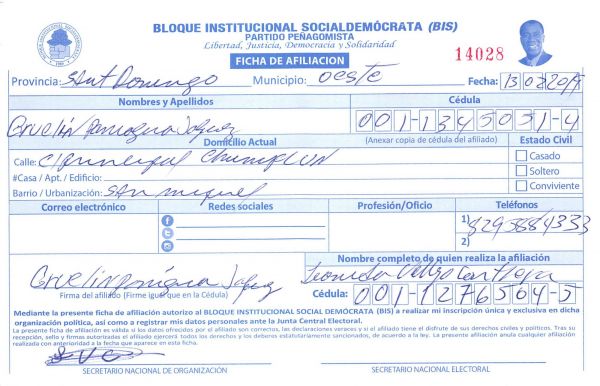 BLOQUE INSTITUCIONAL SOCIALDEMÓCRATA (BIS)
PARTIDO PEÑAGOMISTA
Libertad, Justicia, Democracia y Solidaridad
FICHA DE AFILIACION
14028
Provincia: Santo Domingo Municipio: oeste Fecha:
Nombres y Apellidos Cédula
001-1345051-4
Domicilio Actual (Anexar copia de cédula del afiliado) Estado Civil
Calle: Casado
#Casa / Apt. / Edificio: Soltero
Barrio / Urbanización: San miguel Conviviente
Correo electrónico Redes sociales Profesión/Oficio Teléfonos
1) 8295884333
2)
Nombre completo de quien realiza la afiliación
Firma del afiliado (Firme igual que en la Cédula) Cédula: 001-1276564-5
Mediante la presente ficha de afiliación autorizo al BLOQUE INSTITUCIONAL SOCIAL DEMÓCRATA (BIS) a realizar mi inscripción única y exclusiva en dicha
organización política, así como a registrar mis datos personales ante la Junta Central Electoral.
La presente ficha de afiliación es valida si los datos ofrecidos por el afiliado son correctos, las declaraciones veraces y si el afiliado tiene el disfrute de sus derechos civiles y políticos. Tras su
recepción, sello y firmas autorizadas el afiliado ejercerá todos los derechos y los deberes estatutariamente sancionados, de acuerdo a la ley. La presente afiliación anula cualquier afiliación
realizada con anterioridad a la fecha que aparece en esta ficha.
SECRETARIO NACIONAL DE ORGANIZACIÓN. SECRETARIO NACIONAL ELECTORAL